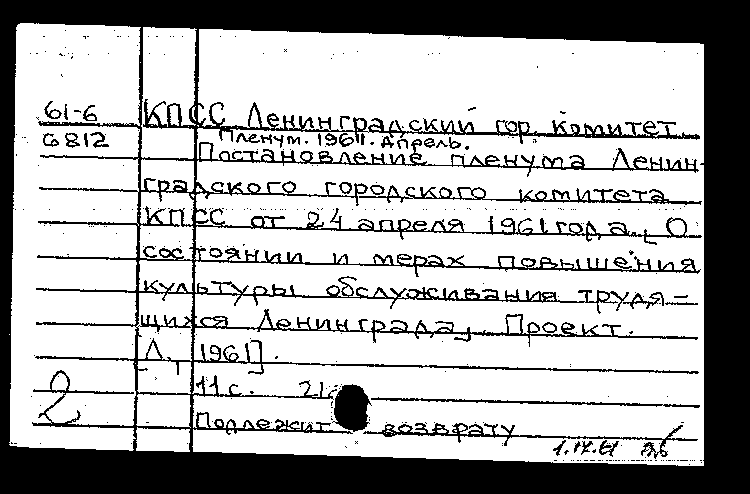 61-6 КПСС Ленинградский гор. комитет
6812 Пленум. 1961. Апрель.
Постановление пленума Ленин-
градского городского комитета
КПСС от 24 апреля 1961 года „О
состоянии и мерах повышения
культуры обслуживания трудя-
щихся Ленинграда„ Проект.
[Л., 1961].
11 с. 21
2 Подлежит возврату